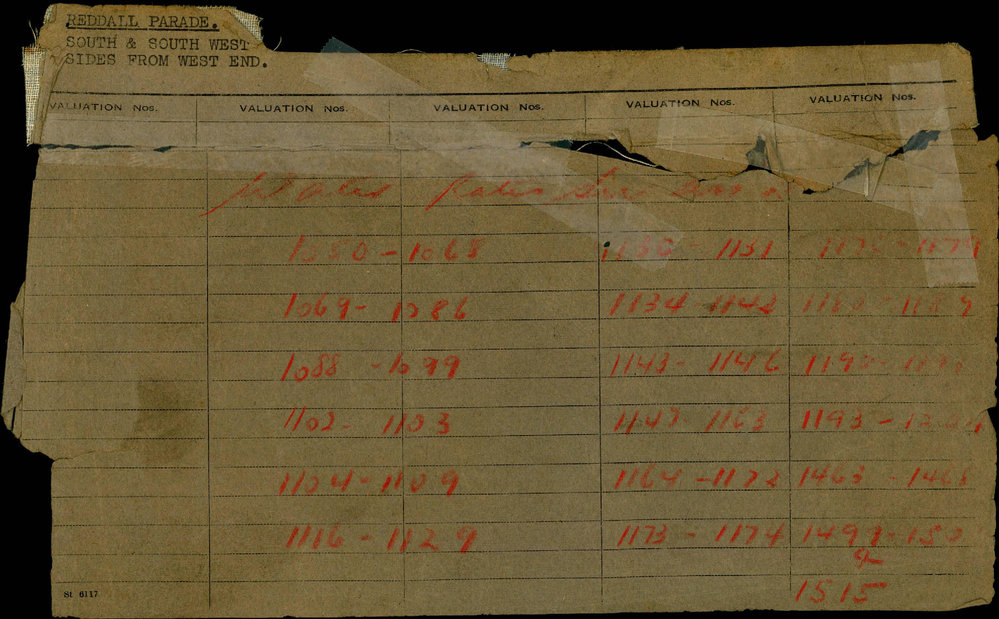 REDDALL PARADE.
SOUTH & SOUTH WEST
SIDES FROM WEST END.
VALUATION Nos. VALUATION Nos. VALUATION Nos. VALUATION Nos. VALUATION Nos.
Rates
1050 - 1068 1130 - 1131 1175 - 1179
1069 - 1086 1134 - 1142 1180 - 1189
1088 - 1099 1143 - 1146 1190 -
1102 - 1103 1147 - 1163 1193 -
1104 - 1109 1164 - 1172 1463 - 1468
1116 - 1129 1173 - 1174 1499 - 150
&
1515
St 6117